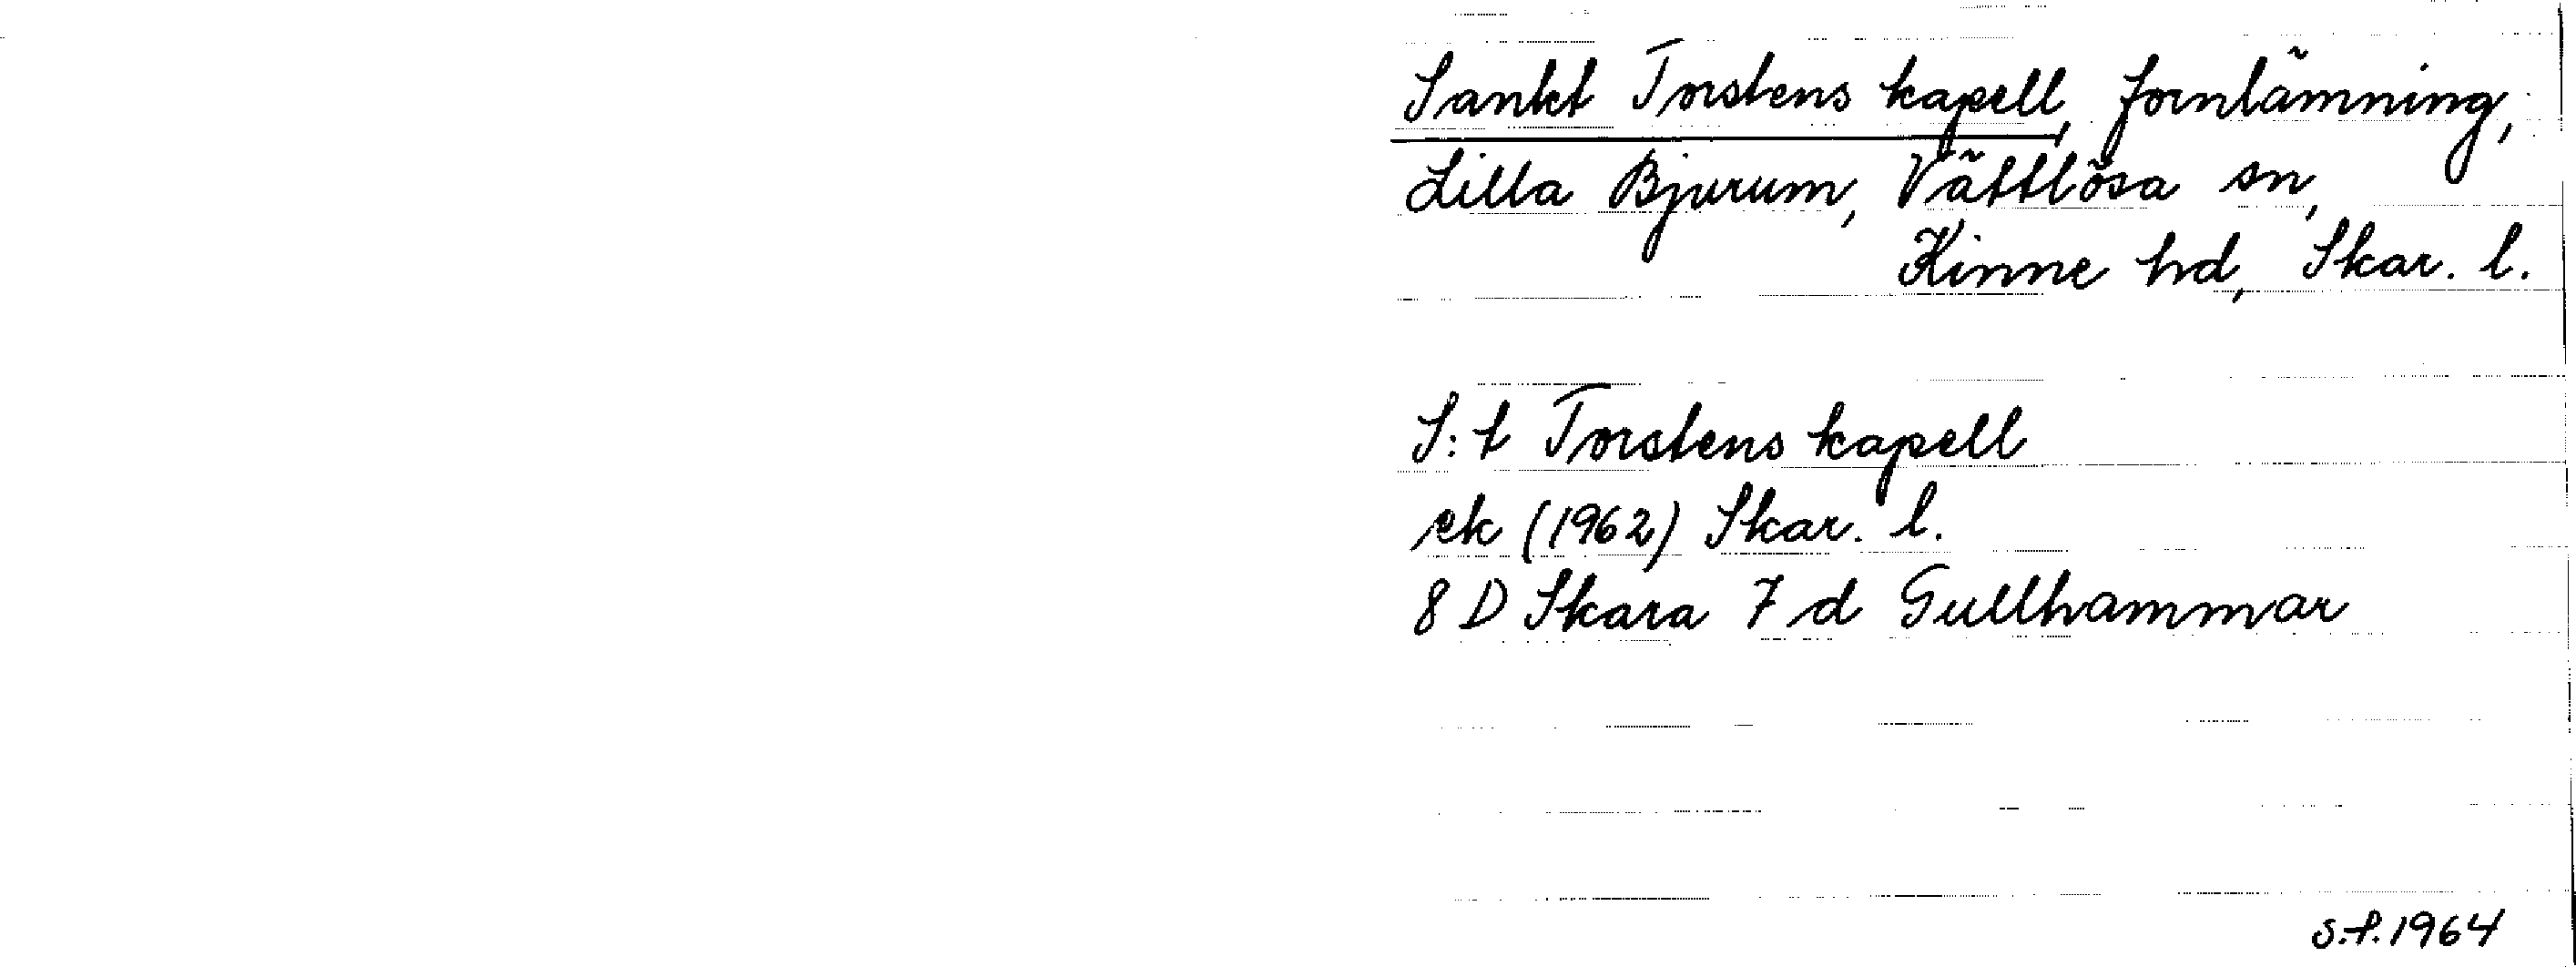 Sankt Torstens kapell, fornlämning,
Lilla Bjurum, Vättlösa sn,
Kinne hd, Skar. l.
S:t Torstens kapell
ek (1962) Skar. l.
8 D Skara 7 d Gullhammar
s.f. 1964